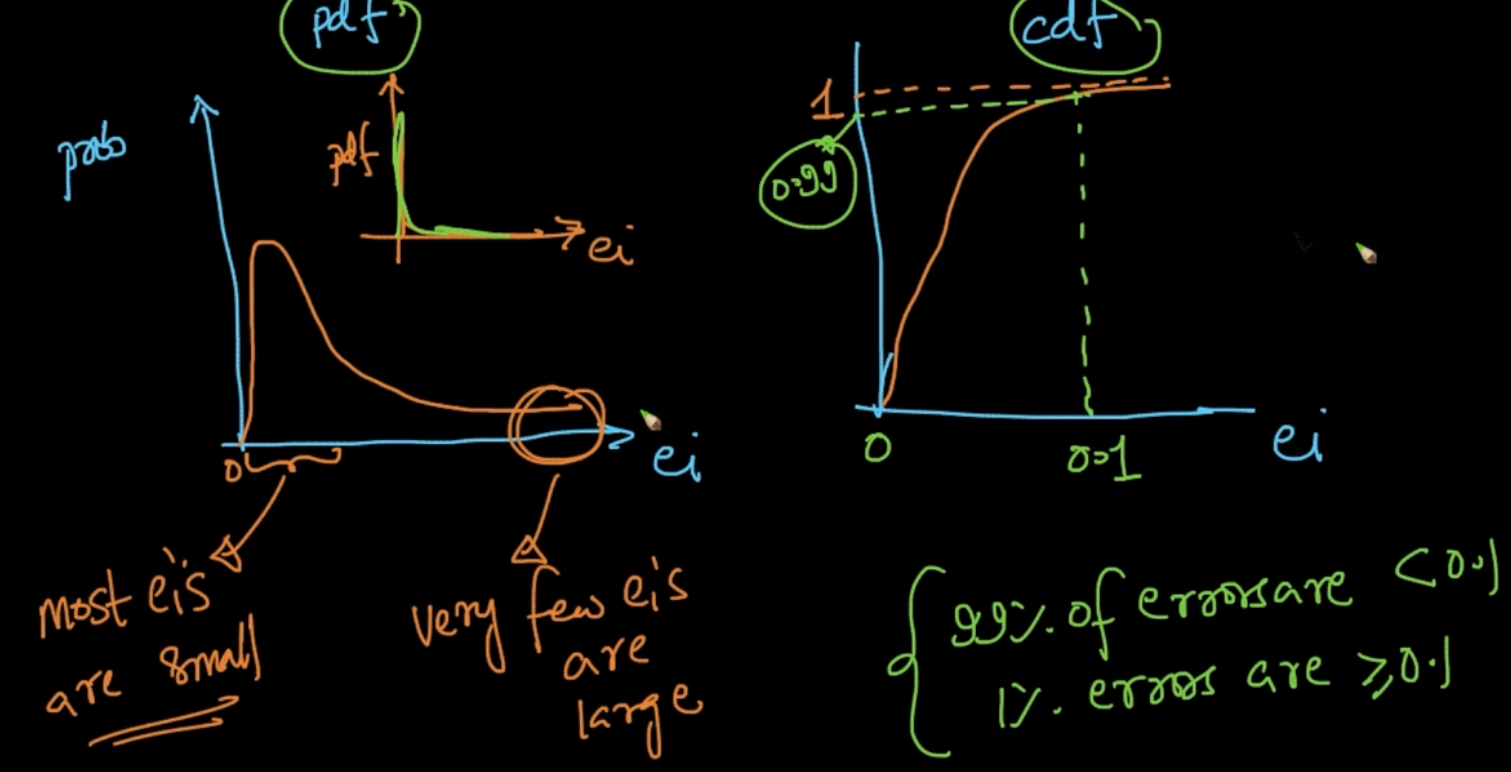 pdf
prob
pdf
ei
0
ei
most ei's
are small
very few ei's
are
large
cdf
1
0.99
0
0.1
ei
99% of errors are < 0.1
1% errors are ≥ 0.1